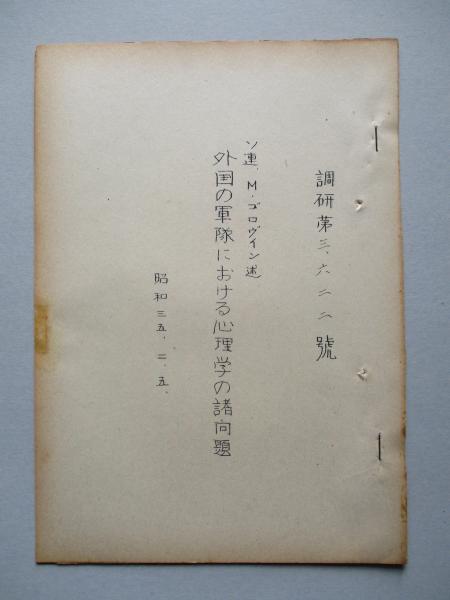 調研第三、六二二號
ソ連、M・ゴロヴイン述
外国の軍隊における心理学の諸問題
昭和三五、二、五、